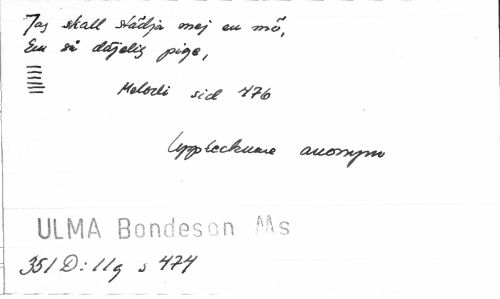 Jag skall städja mej en mö,
En så däjelig pige,
Melodi sid 476
Upptecknare anonym
ULMA Bondeson Ms
351 D:11g s 474